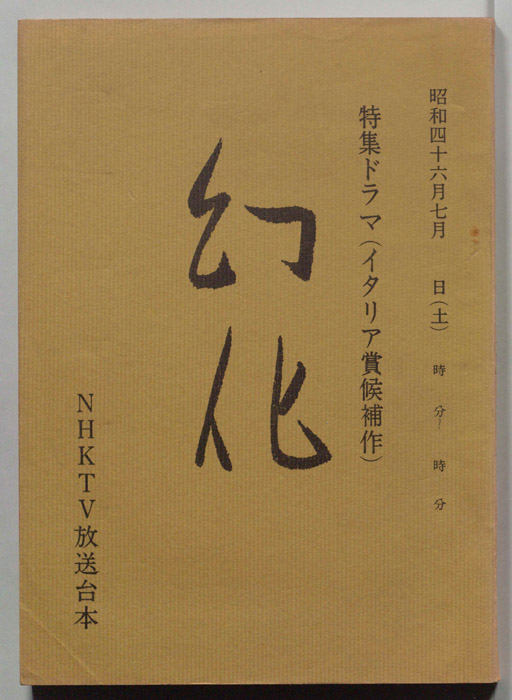 昭和四十六月七月　日(土)　時　分～　時　分
特集ドラマ(イタリア賞候補作)
幻化
NHKTV放送台本